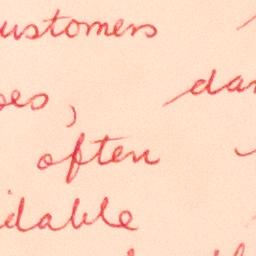 ustomers
es, dan
often
idable